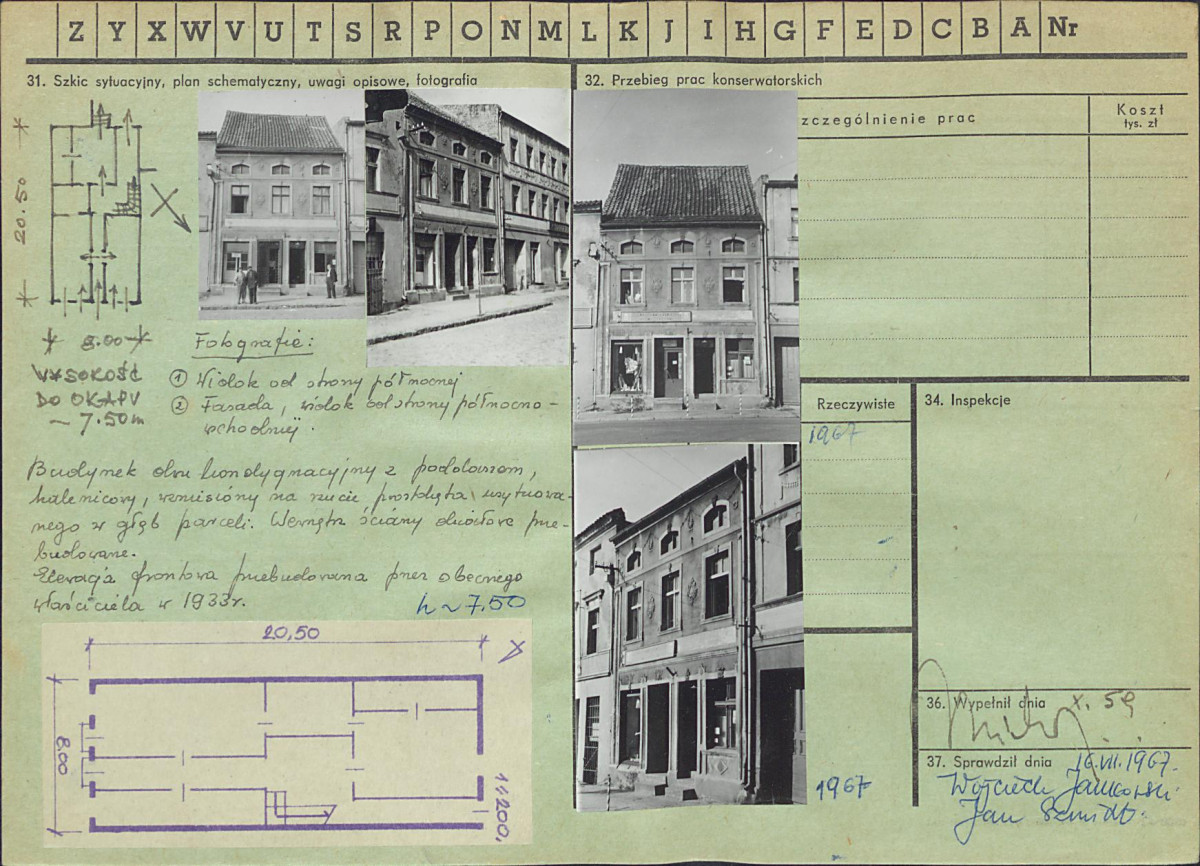 Z Y X W V U T S R P O N M L K J I H G F E D C B A Nr
31. Szkic sytuacyjny, plan schematyczny, uwagi opisowe, fotografia
20.50
8.00
WYSOKOŚĆ
DO OKAPU
~ 7.50m
Fotografie:
① Widok od strony północnej
② Fasada, widok od strony północno-
wschodniej.
Budynek dwukondygnacyjny z poddaszem,
kalenicowy, wzniesiony na rzucie prostokąta usytuowa-
nego w głąb parceli. Wewnątrz ściany działowe prze-
budowane.
Elewacja frontowa przebudowana przez obecnego
właściciela w 1933r.
h ~ 7.50
20,50
8,00
1:200,
32. Przebieg prac konserwatorskich
zczególnienie prac
Koszt
tys. zł
Rzeczywiste
1967
1967
34. Inspekcje
36. Wypełnił dnia X. 59
37. Sprawdził dnia 16.VII.1967.
Wojciech Jankowski
Jan Szmidt.